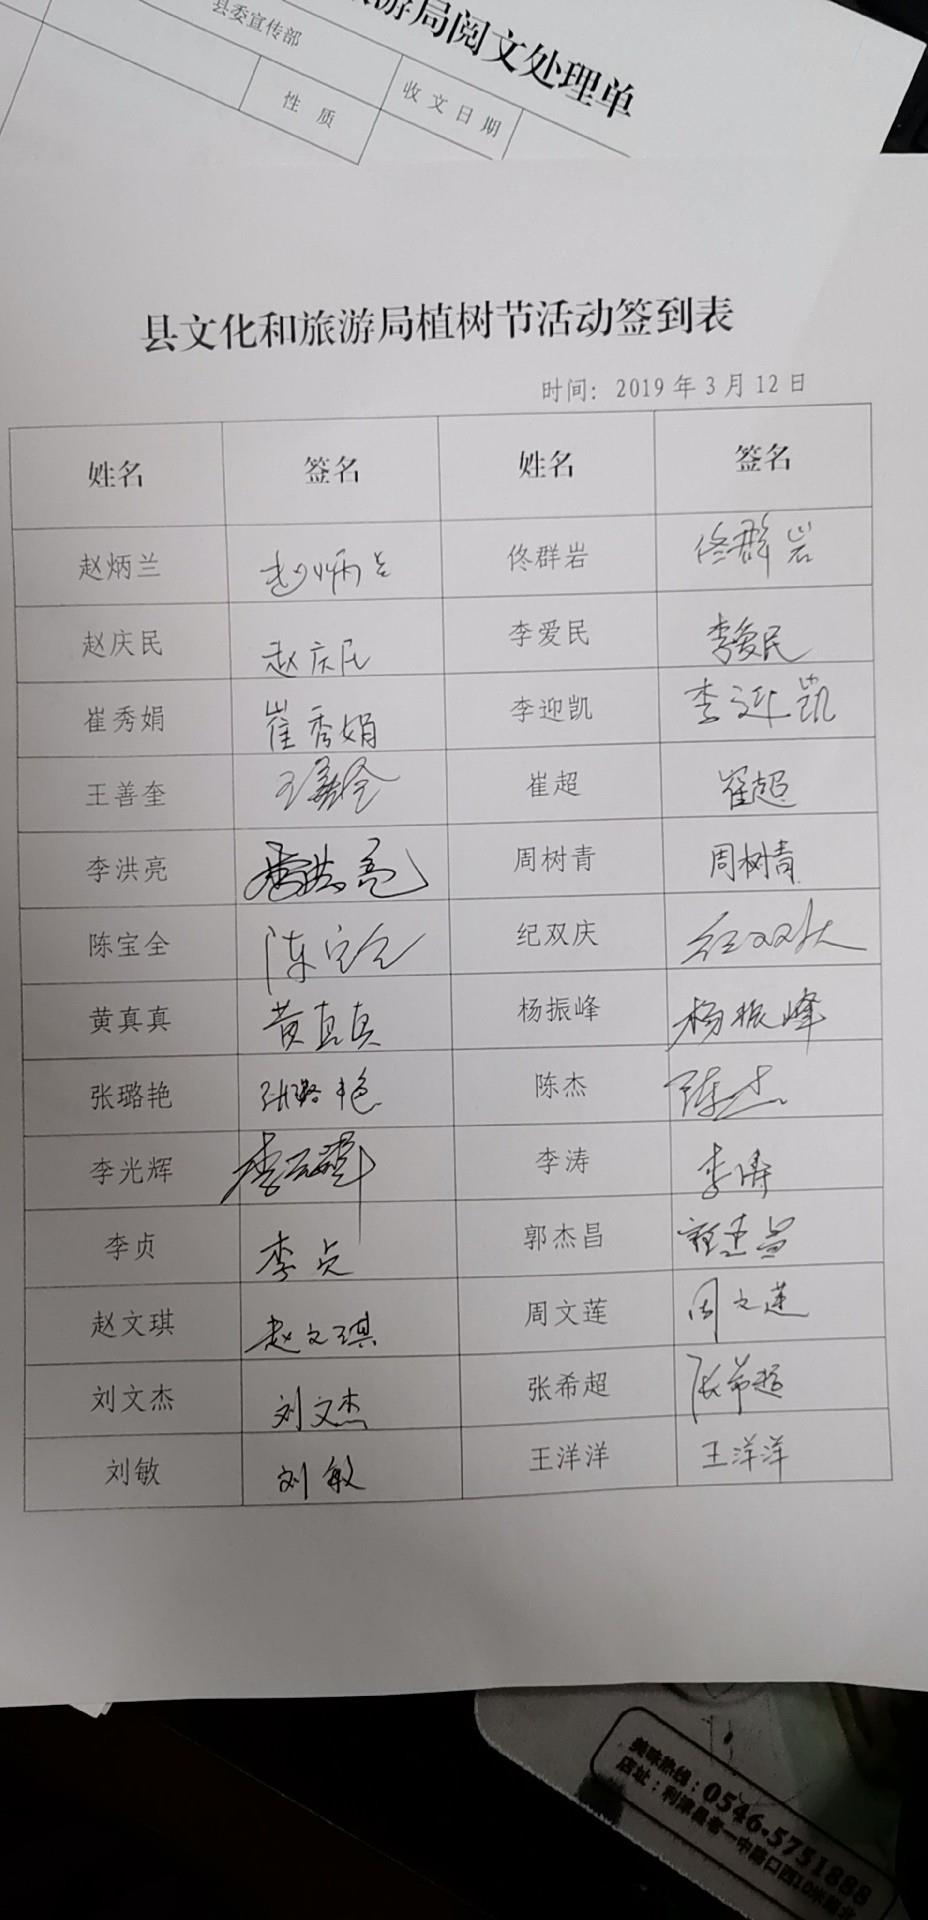 旅游局阅文处理单
县委宣传部
性 质
收文日期
县文化和旅游局植树节活动签到表
时间: 2019年3月12日
姓名 签名 姓名 签名
赵炳兰 赵炳兰 佟群岩 佟群岩
赵庆民 赵庆民 李爱民 李爱民
崔秀娟 崔秀娟 李迎凯 李迎凯
王善奎 王善奎 崔超 崔超
李洪亮 李洪亮 周树青 周树青
陈宝全 陈宝全 纪双庆 纪双庆
黄真真 黄真真 杨振峰 杨振峰
张璐艳 张璐艳 陈杰 陈杰
李光辉 李光辉 李涛 李涛
李贞 李贞 郭杰昌 郭杰昌
赵文琪 赵文琪 周文莲 周文莲
刘文杰 刘文杰 张希超 张希超
刘敏 刘敏 王洋洋 王洋洋
美味热线：0546-5751888
店址：利津县老一中路口西10米路北